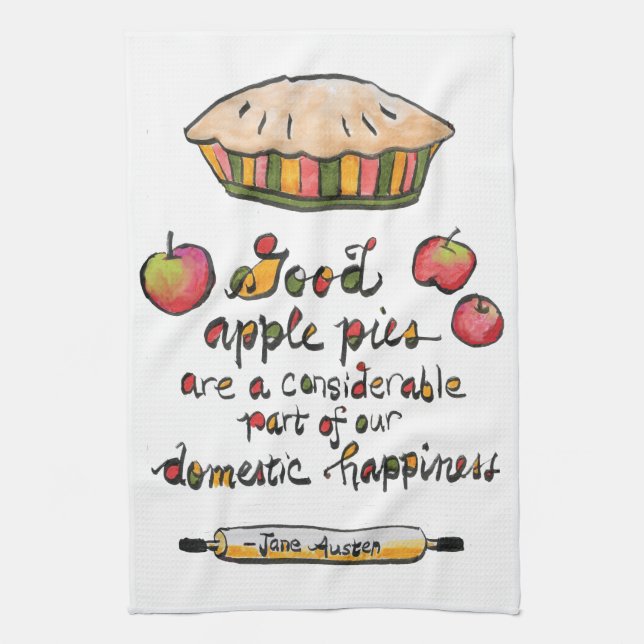 Good
apple pies
are a considerable
part of our
domestic happiness
-Jane Austen